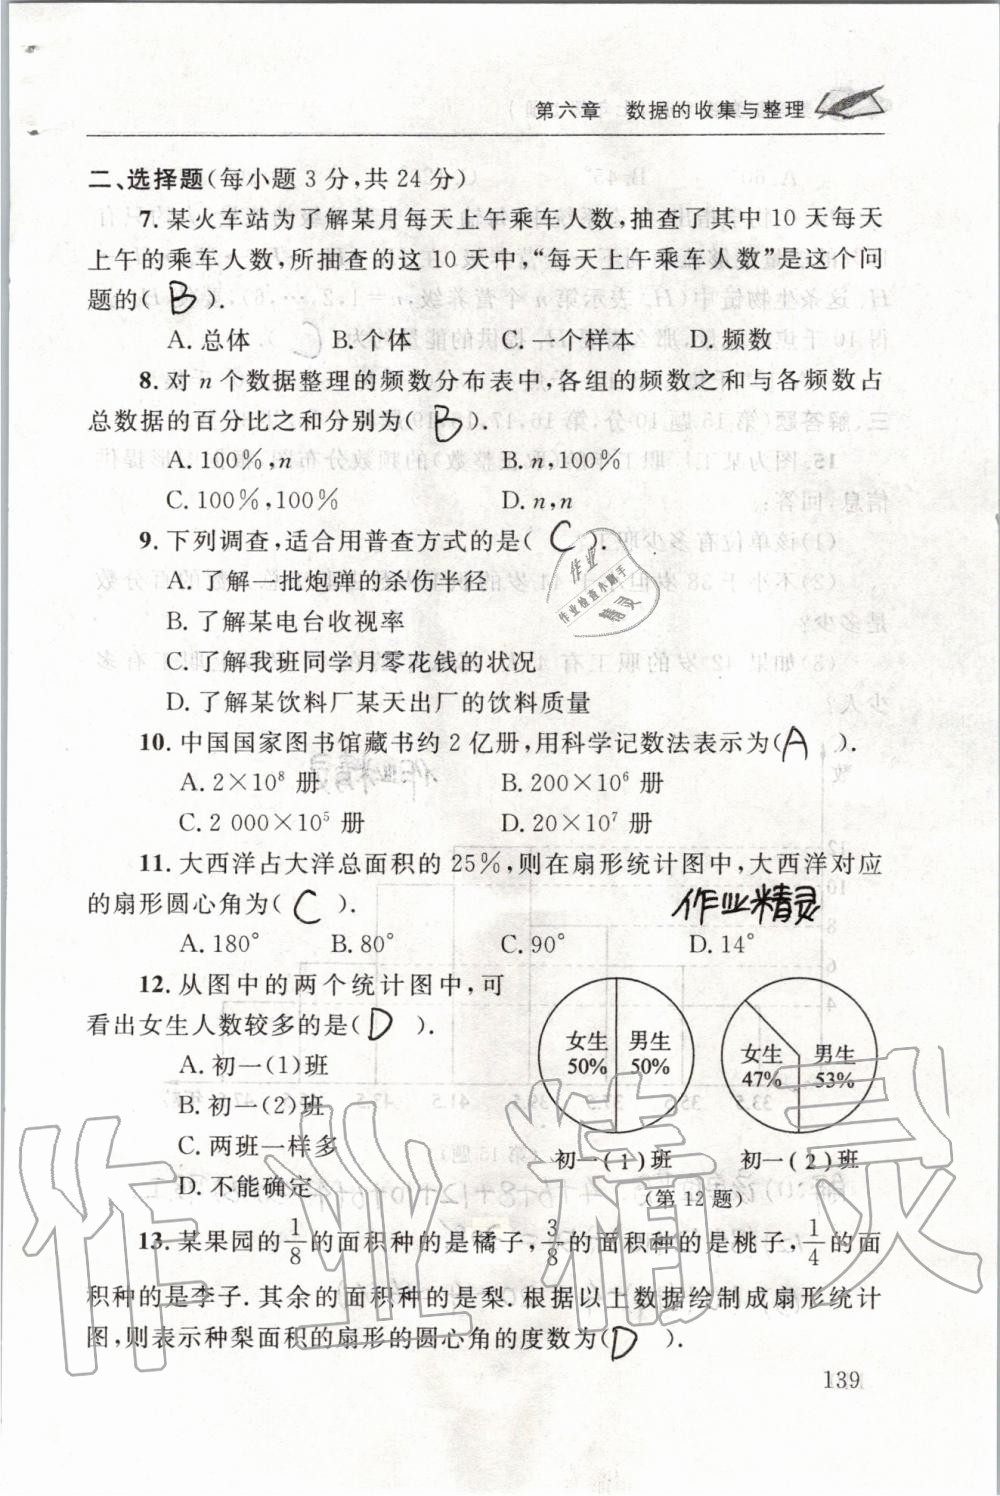 第六章 数据的收集与整理
二、选择题(每小题3分,共24分)
7. 某火车站为了解某月每天上午乘车人数,抽查了其中10天每天
上午的乘车人数,所抽查的这10天中,“每天上午乘车人数”是这个问
题的( B ).
A. 总体 B. 个体 C. 一个样本 D. 频数
8. 对n个数据整理的频数分布表中,各组的频数之和与各频数占
总数据的百分比之和分别为( B ).
A. 100%,n B. n,100%
C. 100%,100% D. n,n
9. 下列调查,适合用普查方式的是( C ).
A. 了解一批炮弹的杀伤半径
B. 了解某电台收视率
C. 了解我班同学月零花钱的状况
D. 了解某饮料厂某天出厂的饮料质量
作业
作业检查小助手
精灵
10. 中国国家图书馆藏书约2亿册,用科学记数法表示为( A ).
A. 2×10⁸ 册 B. 200×10⁶ 册
C. 2 000×10⁵ 册 D. 20×10⁷ 册
11. 大西洋占大洋总面积的25%,则在扇形统计图中,大西洋对应
的扇形圆心角为( C ).
作业精灵
A. 180° B. 80° C. 90° D. 14°
12. 从图中的两个统计图中,可
看出女生人数较多的是( D ).
A. 初一(1)班
B. 初一(2)班
C. 两班一样多
D. 不能确定
女生 50% 男生 50%
女生 47% 男生 53%
初一(1)班 初一(2)班
(第12题)
13. 某果园的1/8的面积种的是橘子,3/8的面积种的是桃子,1/4的面
积种的是李子. 其余的面积种的是梨. 根据以上数据绘制成扇形统计
图,则表示种梨面积的扇形的圆心角的度数为( D ).
139
作业精灵